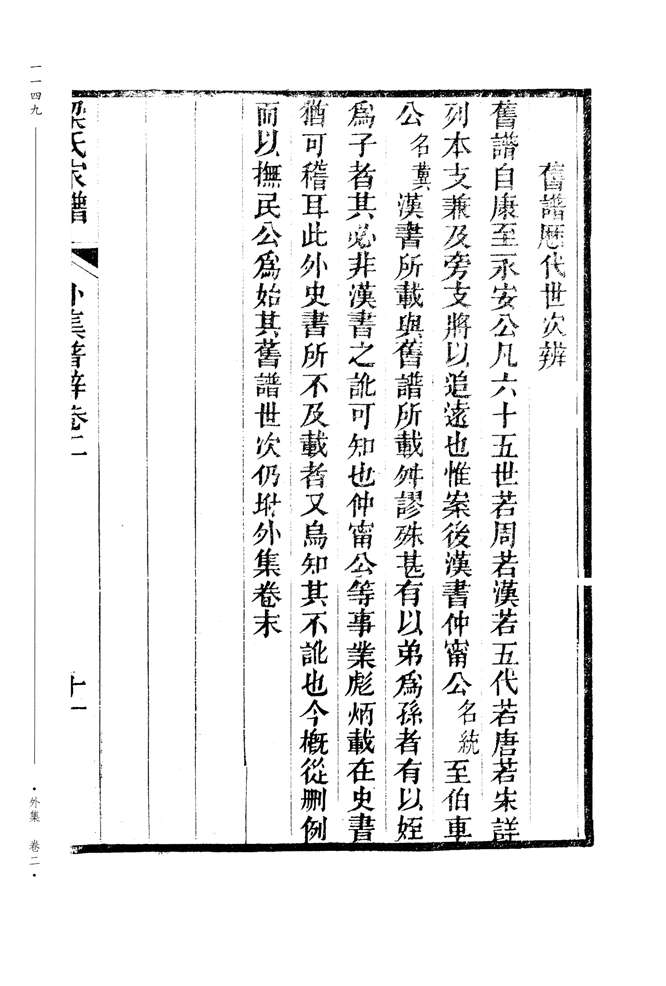 舊譜歷代世次辨
舊譜自康至永安公凡六十五世若周若漢若五代若唐若宋詳
列本支兼及旁支將以追遠也惟案後漢書仲甯公名統至伯車
公名冀漢書所載與舊譜所載舛謬殊甚有以弟爲孫者有以姪
爲子者其必非漢書之訛可知也仲甯公等事業彪炳載在史書
猶可稽耳此外史書所不及載者又烏知其不訛也今概從刪例
而以撫民公爲始其舊譜世次仍坿外集卷末
梁氏家譜 外集譜辨卷二 十一
一一四九
·外集 卷二·